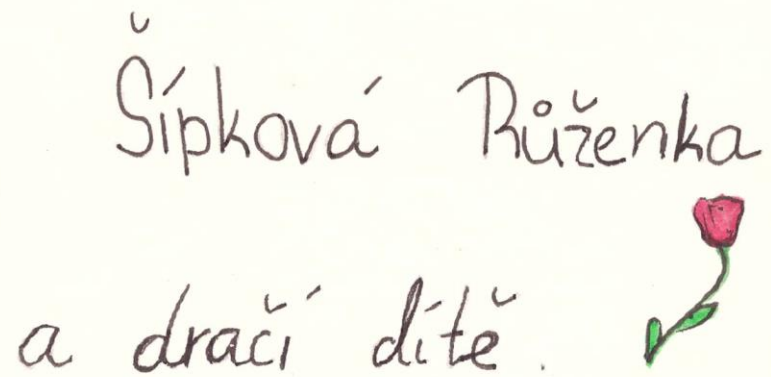 Šípková Růženka
a dračí dítě.